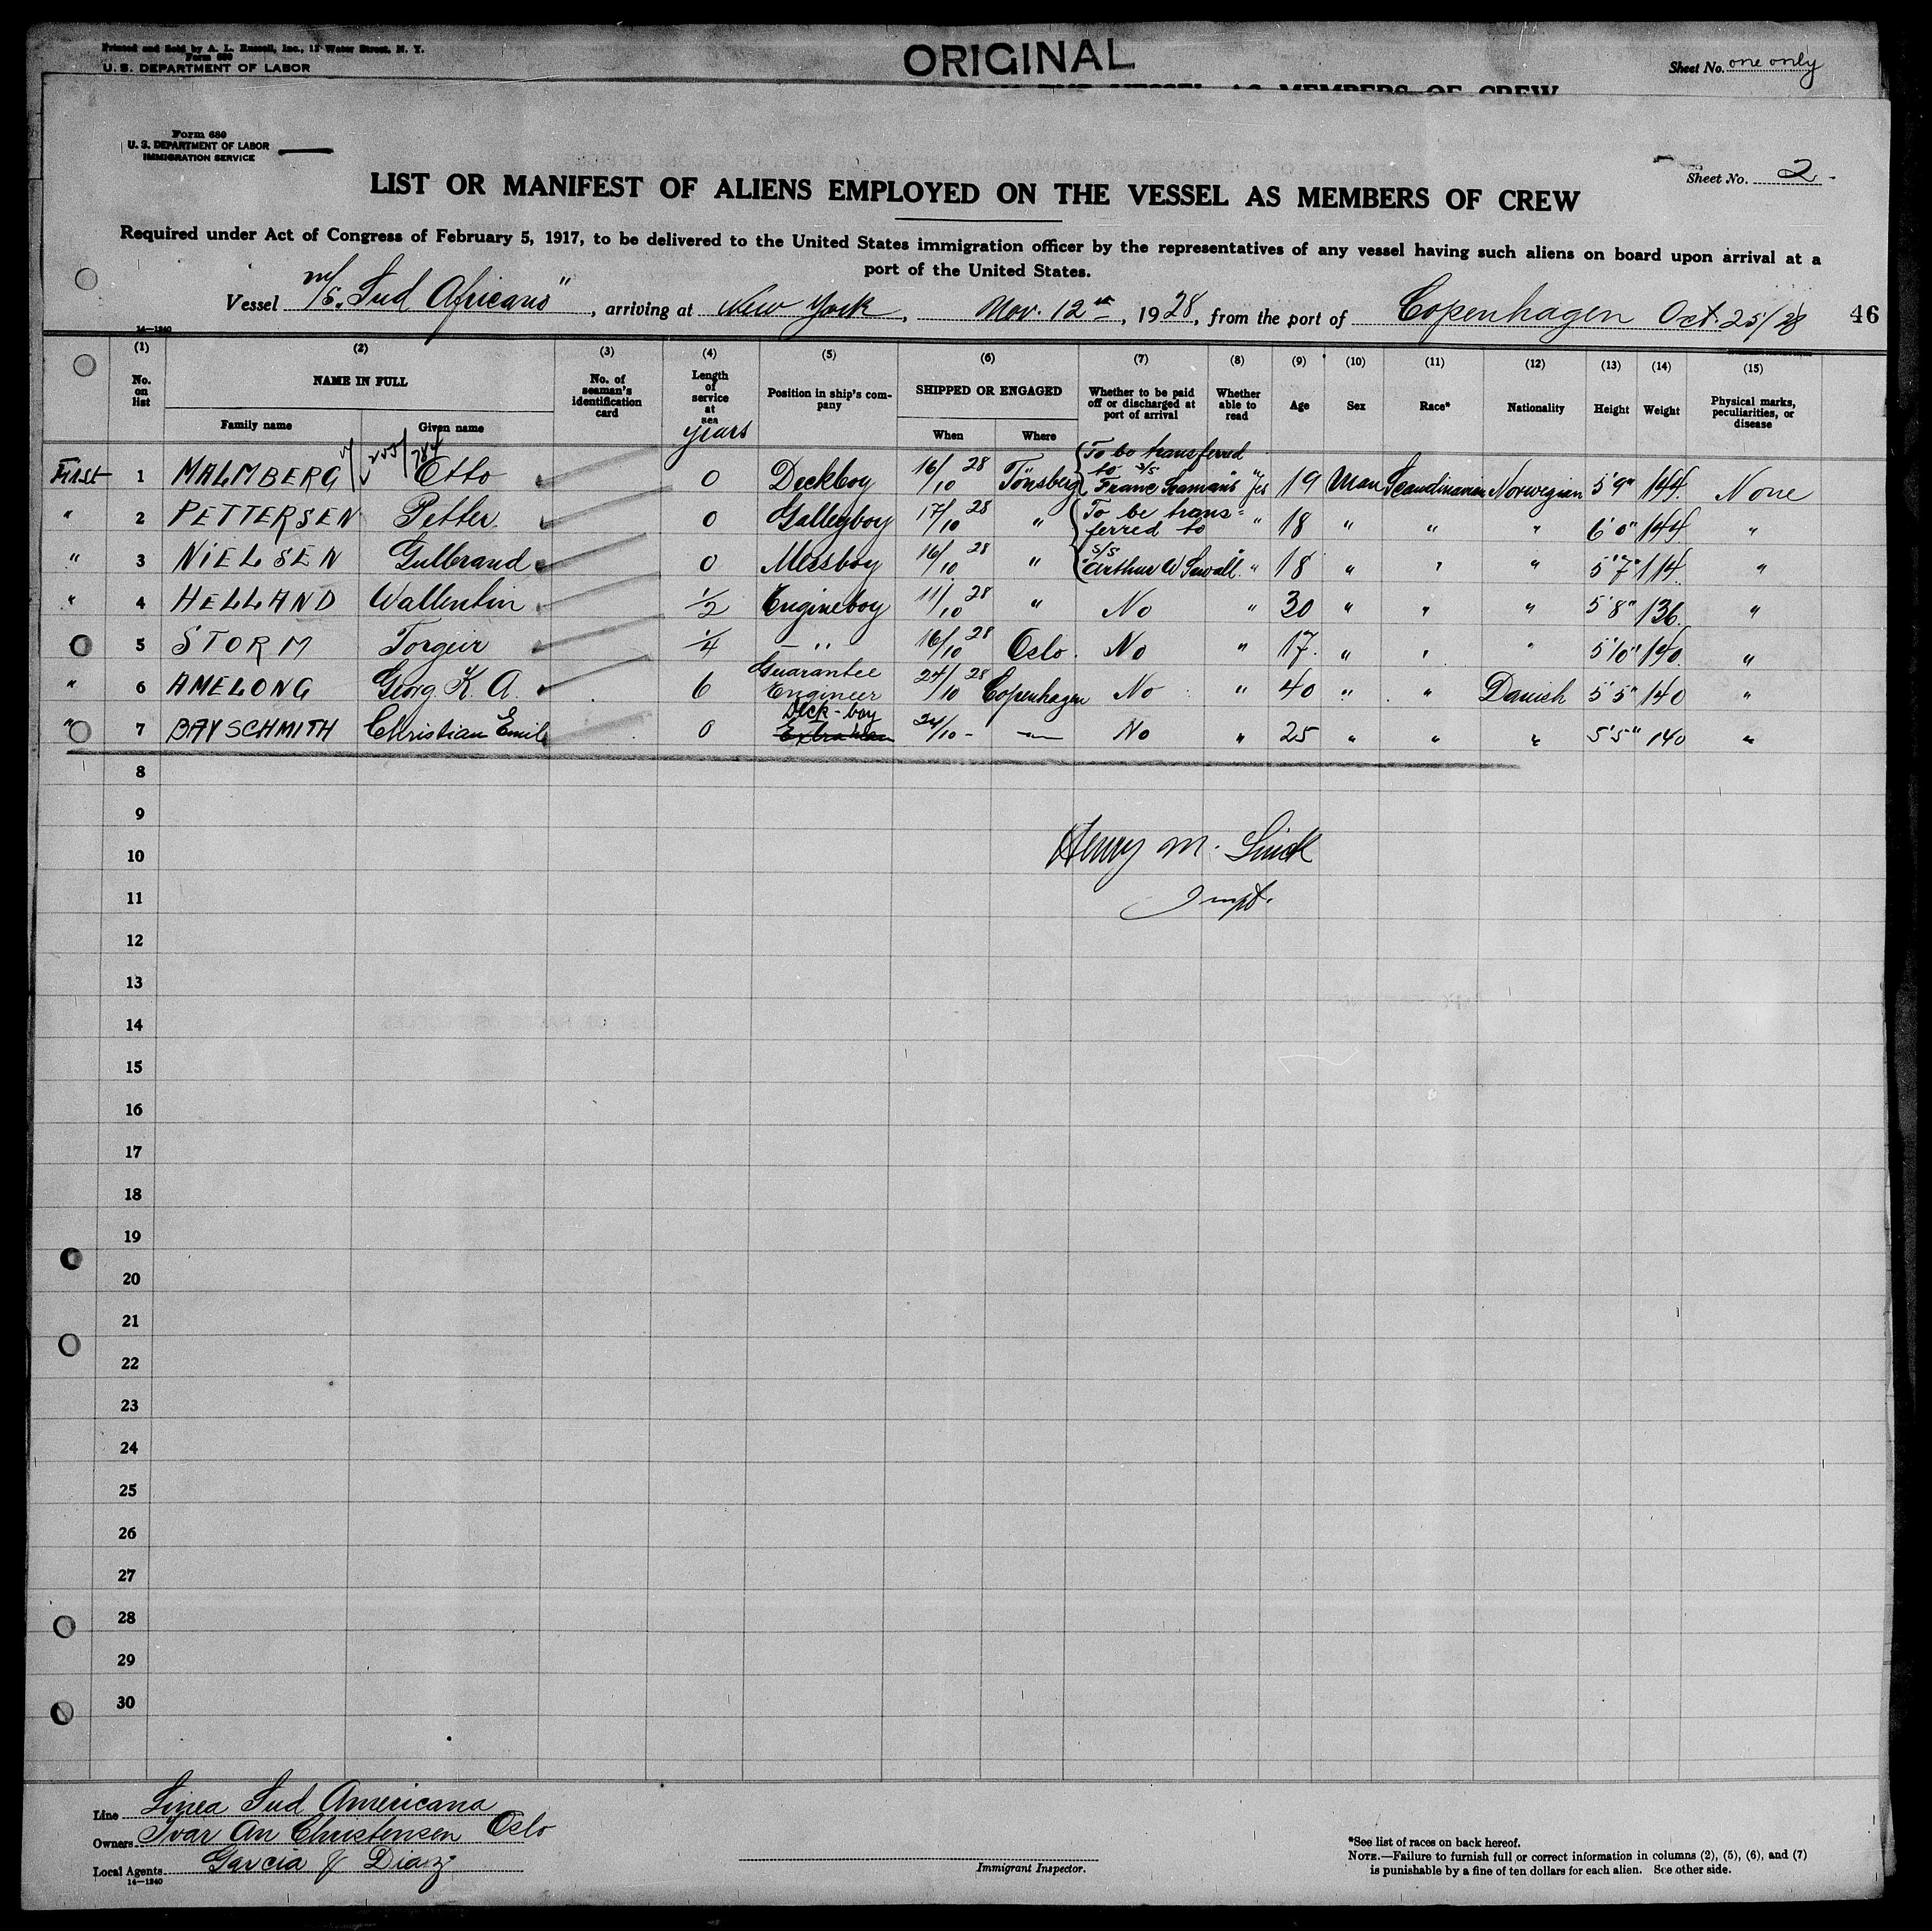 Printed and Sold by A. L. Russell, Inc., 12 Water Street, N. Y.
Form 680
U. S. DEPARTMENT OF LABOR
ORIGINAL
Sheet No. one only
Form 680
U. S. DEPARTMENT OF LABOR
IMMIGRATION SERVICE
Sheet No. 2
LIST OR MANIFEST OF ALIENS EMPLOYED ON THE VESSEL AS MEMBERS OF CREW
Required under Act of Congress of February 5, 1917, to be delivered to the United States immigration officer by the representatives of any vessel having such aliens on board upon arrival at a
port of the United States.
Vessel m/s "Sud Africano", arriving at New York, Nov. 12th, 1928, from the port of Copenhagen Oct. 25/28 46
14—1240
(1) (2) (3) (4) (5) (6) (7) (8) (9) (10) (11) (12) (13) (14) (15)
No. on list NAME IN FULL Family name Given name No. of seaman's identification card Length of service at sea years Position in ship's company SHIPPED OR ENGAGED When Where Whether to be paid off or discharged at port of arrival Whether able to read Age Sex Race* Nationality Height Weight Physical marks, peculiarities, or disease
First 1 MALMBERG Otto 0 Deckboy 16/10 28 Tönsberg To be transferred to s/s "Franc Seamans" Yes 19 Man Scandinavian Norwegian 5'9" 144 None
" 2 PETTERSEN Petter 0 Galleyboy 17/10 28 " To be trans= ferred to " 18 " " " 6'0" 144 "
" 3 NIELSEN Gulbrand 0 Messboy 16/10 28 " s/s "Arthur W Sewall" " 18 " " " 5'7" 114 "
" 4 HELLAND Wallentin 1/2 Engineboy 11/10 28 " No " 30 " " " 5'8" 136 "
5 STORM Torgeir 1/4 — " — 16/10 28 Oslo. No " 17 " " " 5'10" 140 "
" 6 AMELONG Georg K. A. 6 Guarantee Engineer 24/10 28 Copenhagen No " 40 " " Danish 5'5" 140 "
" 7 BAY SCHMITH Christian Emil E 0 Deck-boy 24/10 - — No " 25 " " " 5'5" 140 "
8
9
10
11
12
13
14
15
16
17
18
19
20
21
22
23
24
25
26
27
28
29
30
Henry M.
Inspt.
Line Linea Sud Americana
Owners Ivar An Christensen Oslo
Local Agents Garcia & Diaz
14—1240
Immigrant Inspector.
*See list of races on back hereof.
NOTE.—Failure to furnish full or correct information in columns (2), (5), (6), and (7)
is punishable by a fine of ten dollars for each alien. See other side.